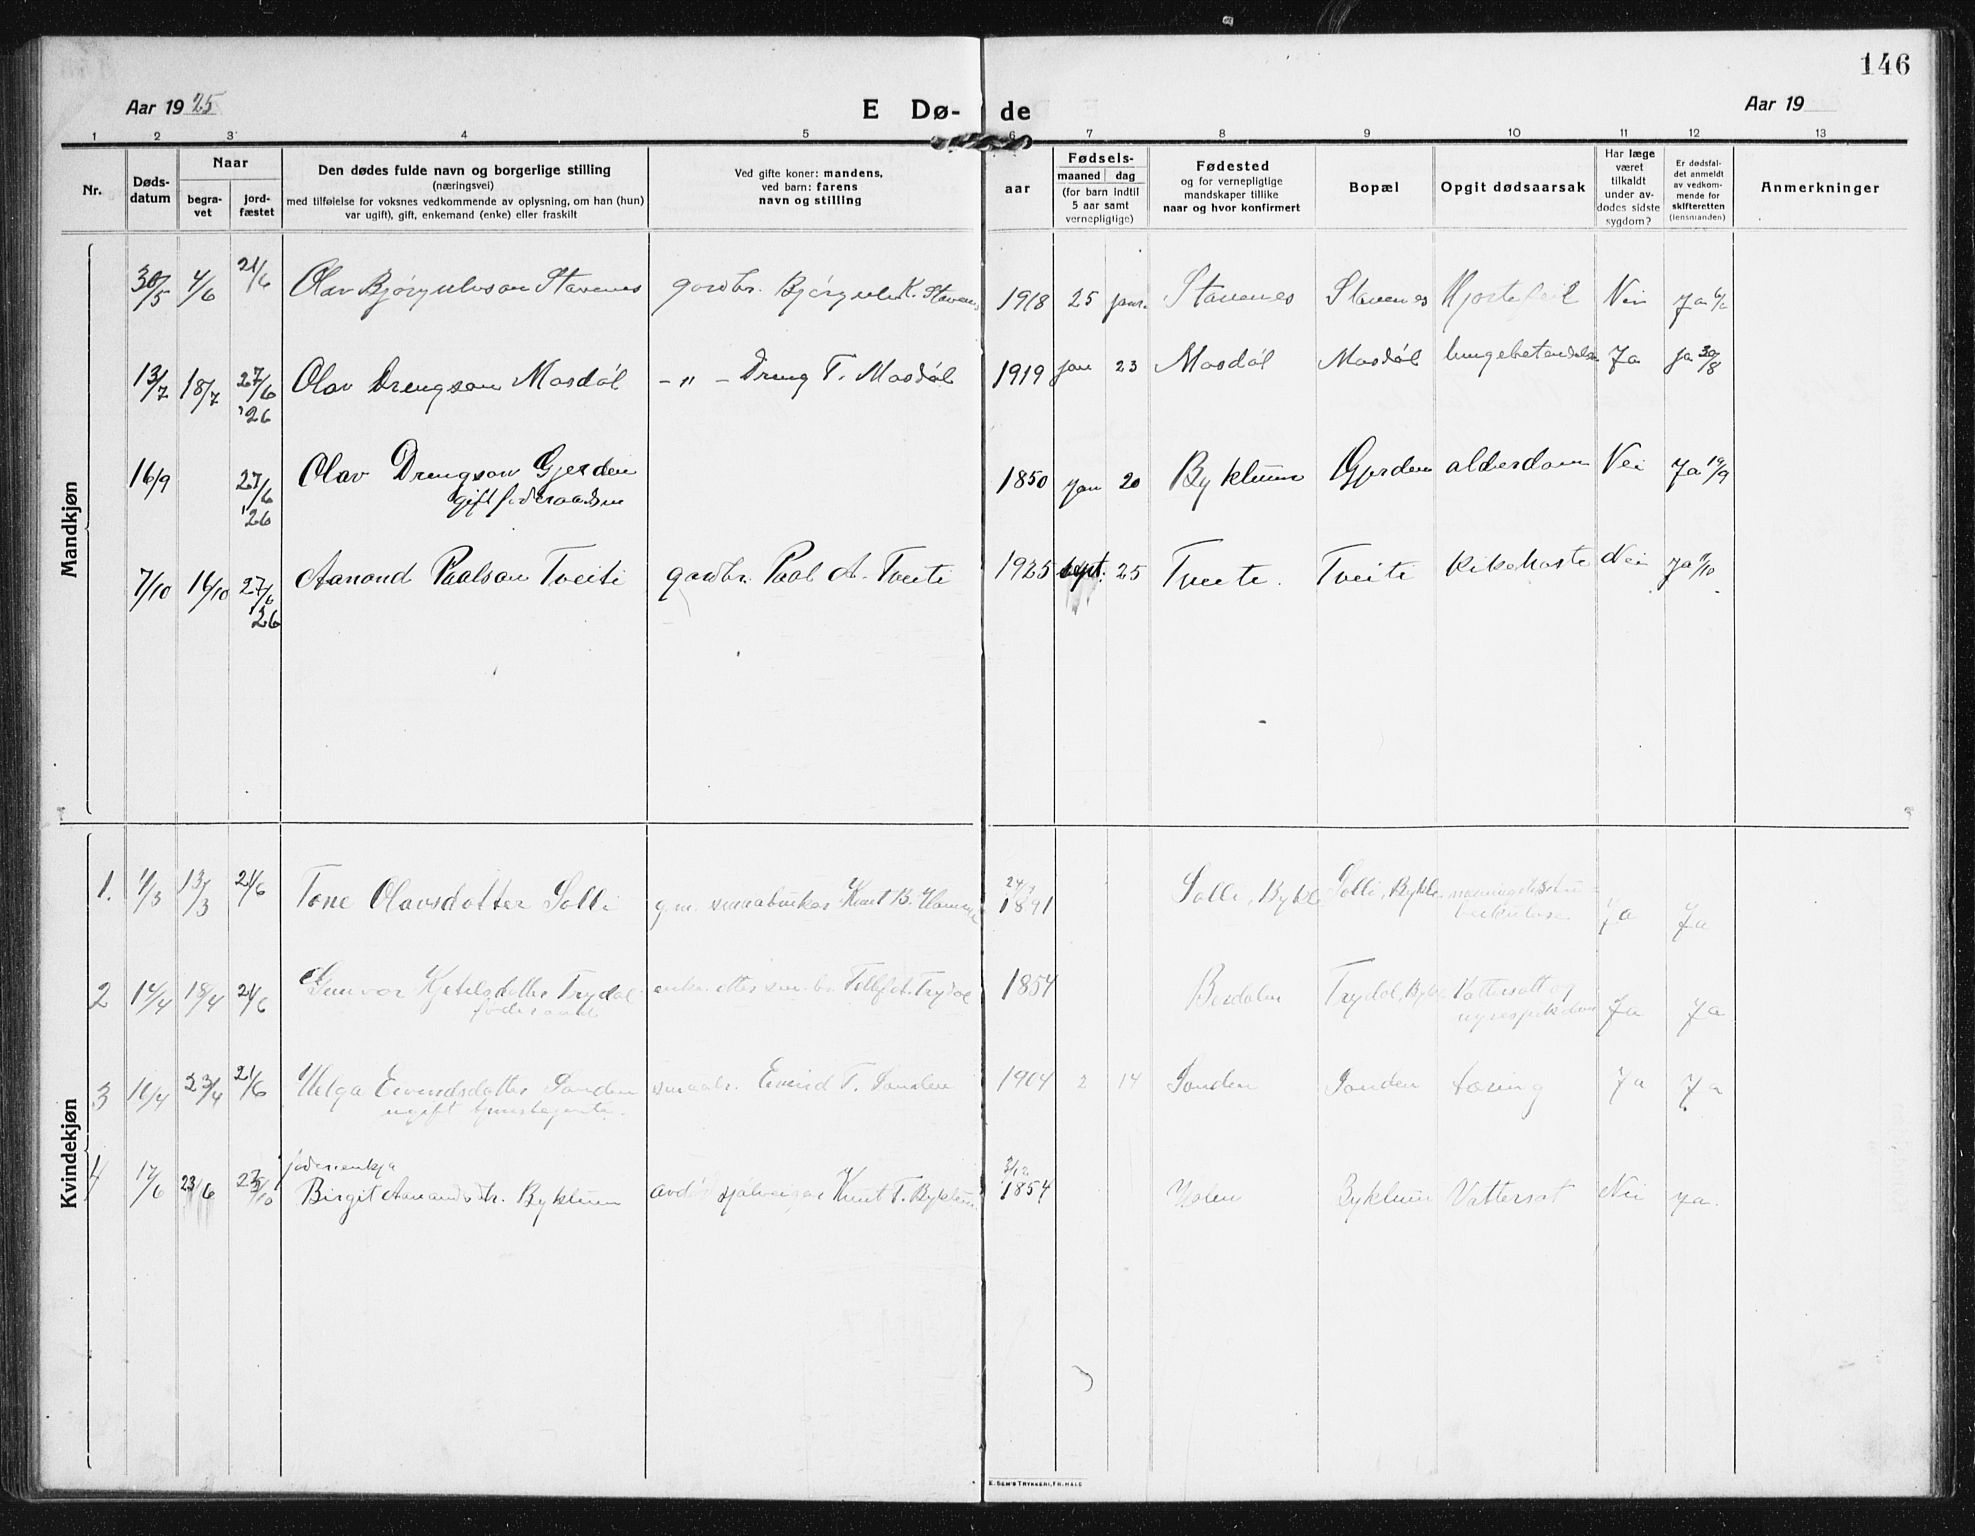 146
Aar 1925
E Dø-
de
Aar 19
1 2 3 4 5 6 7 8 9 10 11 12 13
Nr.
Døds-
datum
Naar
begra-
vet
jord-
fæstet
Den dødes fulde navn og borgerlige stilling
(næringsvei)
med tilføielse for voksnes vedkommende av oplysning, om han (hun)
var ugift), gift, enkemand (enke) eller fraskilt
Ved gifte koner: mandens,
ved barn: farens
navn og stilling
aar
Fødsels-
maaned dag
(for barn indtil
5 aar samt
vernepligtige)
Fødested
og for vernepligtige
mandskaper tillike
naar og hvor konfirmert
Bopæl
Opgit dødsaarsak
Har læge
været
tilkaldt
under av-
dødes sidste
sygdom?
Er dødsfal-
det anmeldt
av vedkom-
mende for
skifteretten
(lensmanden)
Anmerkninger
Mandkjøn
30/5 4/6 21/6 Olav Bjørgulvson Stavenes gardbr. Bjørgulv K. Stavenes 1918 25 janr. Stavenes Stavenes Hjertefeil Nei Ja
13/7 18/7 27/6 '26 Olav Drengson Mosdøl - " - Dreng T. Mosdøl 1919 jan 23 Mosdøl Mosdøl lungebetændelse Ja ja 30/8
16/9 27/6 '26 Olav Drengson Gjerden 1850 Jan 20 Byklum Gjerden alderdom Nei Ja 19/9
gift føderaadsm
7/10 16/10 27/6 '26 Aanond Paalson Tveiti gardbr. Paal A. Tveiti 1925 sept. 25 Tveite. Tveiti Kikehoste Nei Ja
Kvindekjøn
1. 1/3 13/3 21/6 Tone Olavsdotter Solli g.m. smaabruker Knut B. 1891 Solli, Bykle Solli, Bykle Ja Ja
2 14/4 18/4 21/6 Gunvor Kjetilsdotter Trydal enke etter 1854 Bordalen Trydal, Bykle Vattersott og Ja Ja
3 16/4 23/4 21/6 Helga Eivendsdotter Sanden smaabr. Eivend T. Sanden 1904 2 14 Sanden Sanden tæring Ja Ja
ugift
4 17/6 23/6 føderienkja
Birgit Aanandsdtr. Byklum avdø sjølveigar Knut T. Byklum 3/12 1854 Holen Byklum Vattersot Nei ja.
E. SEM'S TRYKKERI, FR.HALD